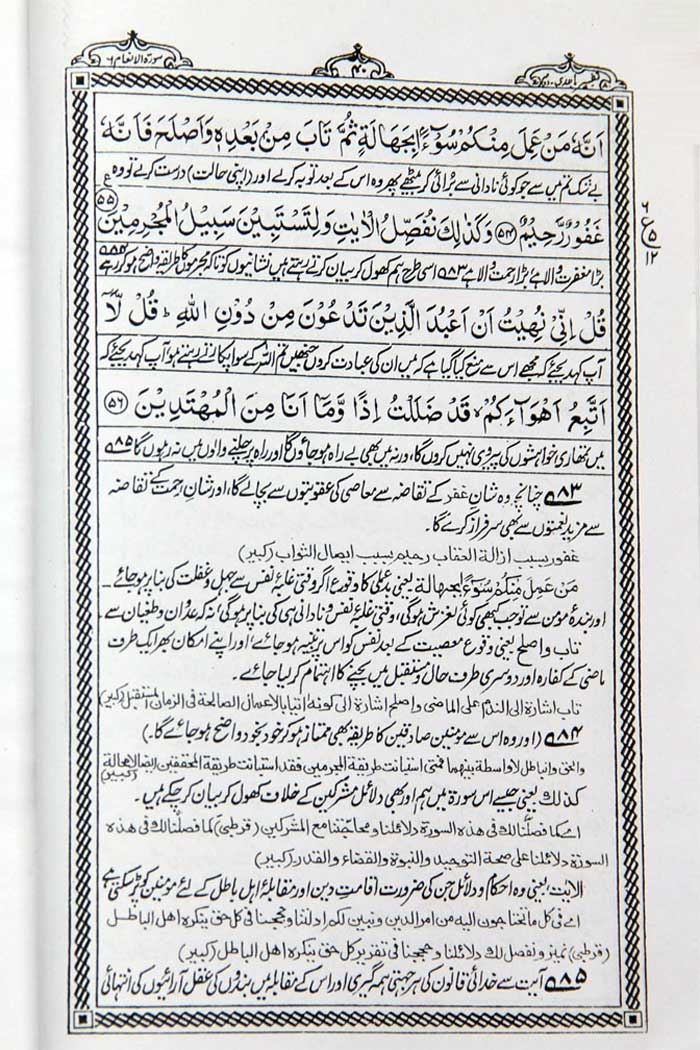 سورة الانعام ٦
٤٠
تفسیر ماجدی
اَنَّهٗ مَنْ عَمِلَ مِنْكُمْ سُوْٓءًۢا بِجَهَالَةٍ ثُمَّ تَابَ مِنْۢ بَعْدِهٖ وَاَصْلَحَ فَاَنَّهٗ
بے شک تم میں سے جو کوئی نادانی سے برائی کر بیٹھے پھر وہ اس کے بعد توبہ کرلے اور (اپنی حالت) درست کرلے تو وہ
غَفُوْرٌ رَّحِیْمٌ ﴿۵۴﴾ وَكَذٰلِكَ نُفَصِّلُ الْاٰیٰتِ وَلِتَسْتَبِیْنَ سَبِیْلُ الْمُجْرِمِیْنَ ﴿۵۵﴾
بڑا مغفرت والا ہے بڑا رحمت والا ہے ۸۳ اسی طرح ہم کھول کر بیان کرتے رہتے ہیں نشانیوں کو تاکہ مجرموں کا طریقہ واضح ہو کر رہے ۸۴
ع
٦
۵
١٢
قُلْ اِنِّیْ نُهِیْتُ اَنْ اَعْبُدَ الَّذِیْنَ تَدْعُوْنَ مِنْ دُوْنِ اللّٰهِ ؕ قُلْ لَّاۤ
آپ کہہ دیجئے کہ مجھے اس سے منع کیا گیا ہے کہ میں ان کی عبادت کروں جنھیں تم اللہ کے سوا پکارتے رہتے ہو آپ کہہ دیجئے کہ
اَتَّبِعُ اَهْوَآءَكُمْ ۙ قَدْ ضَلَلْتُ اِذًا وَّمَاۤ اَنَا مِنَ الْمُهْتَدِیْنَ ﴿۵۶﴾
میں تمھاری خواہشوں کی پیروی نہیں کروں گا، ورنہ میں بھی بے راہ ہو جاؤں گا اور راہ پر چلنے والوں میں نہ رہوں گا ۸۵
۸۳ چنانچہ وہ شانِ غفر کے تقاضہ سے معاصی کی عقوبتوں سے بچالے گا، اور شانِ رحمت کے تقاضہ
سے مزید نعمتوں سے بھی سرفراز کرے گا۔
غفور بسبب ازالة العقاب رحیم بسبب ایصال الثواب (کبیر)
مَنْ عَمِلَ مِنْكُمْ سُوْٓءًۢا بِجَهَالَةٍ یعنی بدعملی کا وقوع اگر وقتی غلبۂ نفس سے جہل و غفلت کی بنا پر ہو جائے۔
اور بندۂ مومن سے تو جب کبھی کوئی لغزش ہوگی، وقتی غلبۂ نفس و نادانی ہی کی بنا پر ہوگی، نہ کہ عدوان و طغیان سے۔
تاب و اصلح یعنی وقوعِ معصیت کے بعد نفس کو اس پر تنبیہ ہو جائے، اور اپنے امکان بھر ایک طرف
ماضی کے کفارہ اور دوسری طرف حال و مستقبل میں بچنے کا اہتمام کر لیا جائے۔
تاب اشارة الی الندم علی الماضی و اصلح اشارة الی کونه اٰتیا بالاعمال الصالحة فی الزمان المستقبل (کبیر)
۸۴ (اور وہ اس سے مومنین صادقین کا طریقہ بھی ممتاز ہو کر خود بخود واضح ہو جائے گا۔)
والحق والباطل لا واسطة بینهما فمتی استبانت طریقة المجرمین فقد استبانت طریقة المحققین ایضا لا محالة (کبیر)
كذلك یعنی جیسے اس سورۃ میں ہم اور بھی دلائل مشرکین کے خلاف کھول کر بیان کر چکے ہیں۔
اے كما فصلنا لك فی هذه السورة دلائلنا و محاجتنا مع المشركین (قرطبی) كما فصلنا لك فی هذه
السورة دلائلنا علی صحة التوحید والنبوة والقضاء والقدر (کبیر)
الاٰیٰت یعنی وہ احکام و دلائل جن کی ضرورت اقامتِ دین اور مقابلۂ اہل باطل کے لئے مومنین کو پڑ سکتی ہے
اے فی كل ما تحتاجون الیه من امر الدین و نبین لكم ادلتنا و حججنا فی كل حق ینكره اهل الباطل
(قرطبی) نمیز و نفصل لك دلائلنا و حججنا فی تقریر كل حق ینكره اهل الباطل (کبیر)
۸۵ آیت سے خدائی قانون کی ہر جہتی ہمہ گیری اور اس کے مقابلہ میں بندوں کی عقل آرائیوں کی انتہائی